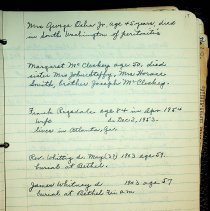 Mrs George Baha Jr. age 45 years, died
in South Washington of peritonitis
Margaret McCloskey age 50, died
sister Mrs John Steffy, Mrs Horace
Smith, brother Joseph McCloskey.
Frank Ragsdale age 84 in Apr. 1954
wife d. Dec 2, 1953.
lives in Atlanta, Ga.
Rev. Whitney d. May (27) 1903 age 59.
burial at Bethel.
James Whitney d. 1903 age 57
burial at Bethel